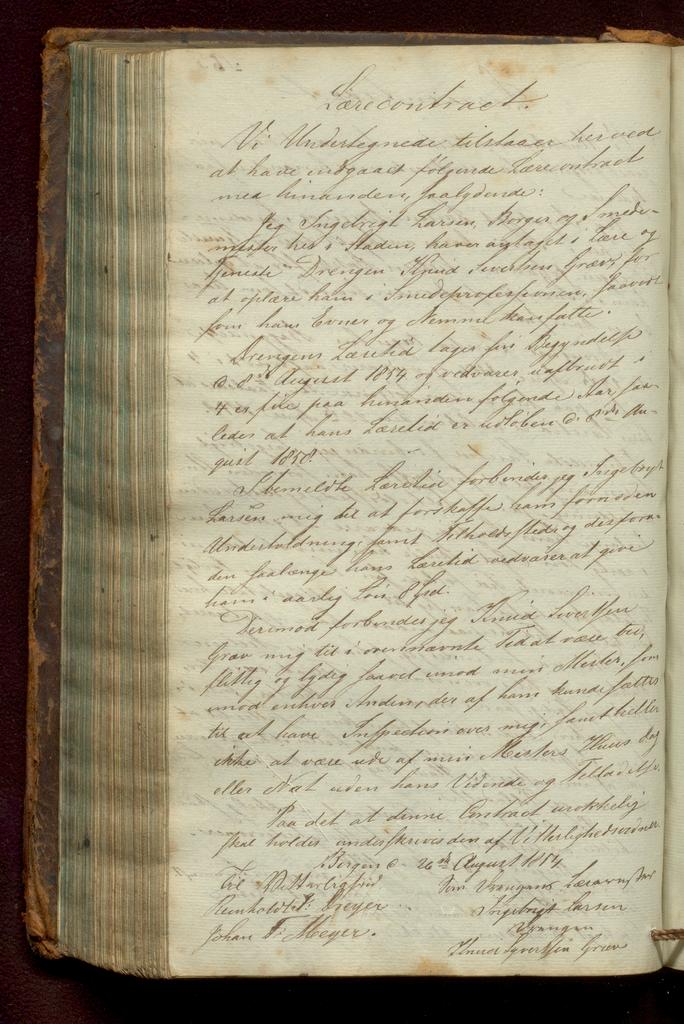 Lærecontract.
Vi Undertegnede tilstaaer herved
at have indgaaet følgende Lærecontract
med hinanden, saalydende:
Jeg Ingebrigt Larsen, Borger og Smede-
mester her i Staden, haver antaget i Lære og
Tjeneste Drengen Knud Sivertsen Græv, for
at oplære ham i Smedeprofessionen, saavidt
som hans Evner og Nemme kan fatte.
Drengens Læretid tager sin Begyndelse
d. 8de August 1854 og vedvarer uafbrudt i
4 er fire paa hinanden følgende Aar saa-
ledes at hans Læretid er udløben d. 8de Au-
gust 1858.
I bemeldte Læretid forbinder jeg Ingebrigt
Larsen mig til at forskaffe ham fornøden
Underholdning, samt Tilholdssted og desforu-
den saalænge hans Læretid vedvarer at give
ham i aarlig Løn 8 Spd.
Derimod forbinder jeg Knud Sivertsen
Græv mig til i ovennævnte Tid at være tro,
flittig og lydig saavel imod min Mester, som
imod enhver Anden, der af ham kunde sættes
til at have Inspection over mig, samt heller
ikke at være ude af min Mesters Huus dag
eller Nat uden hans Vidende og Tilladelse.
Paa det at denne Contract urokkelig
skal holdes underskrives den af Vitterlighedsvidner.
Bergen d. 26de August 1854
Til Vitterlighed Som Drengens Læremester
Reinholdt Geyer Ingebrigt Larsen
Johan F. Meyer. Drengen
Knud Syvertsen Græv